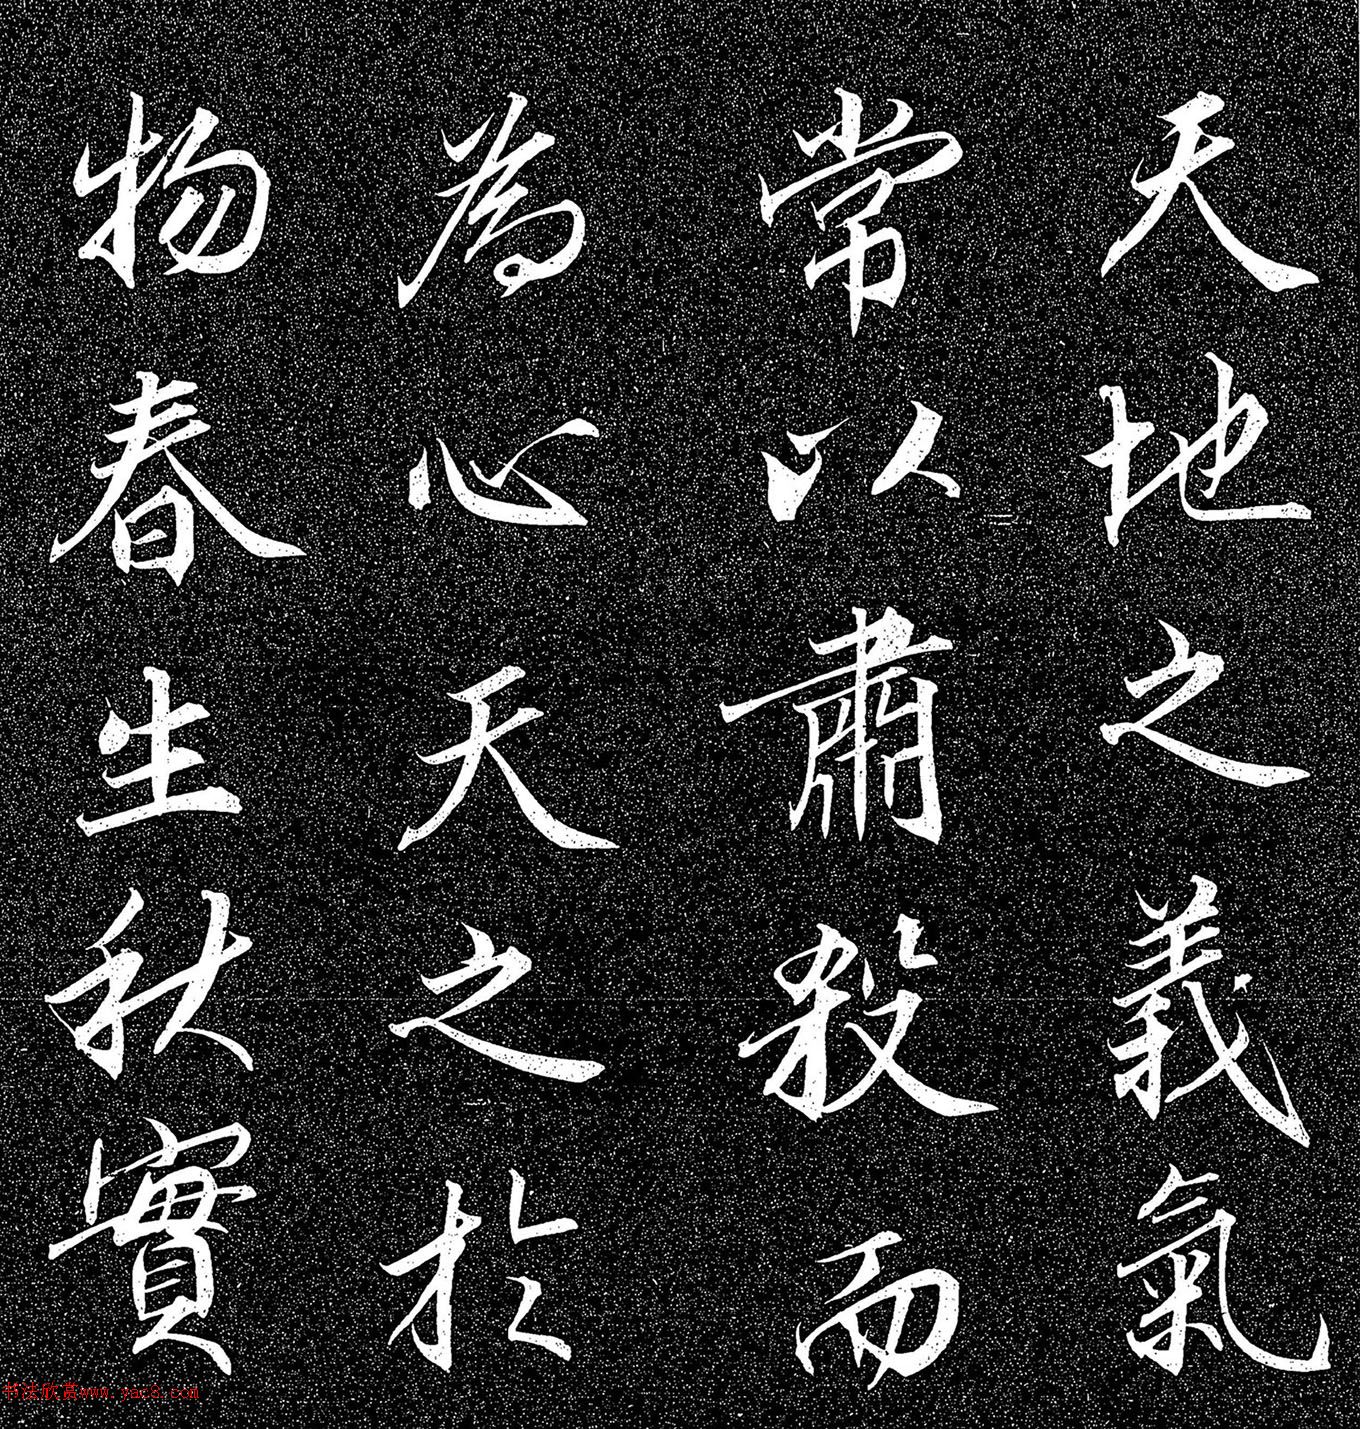 天地之義氣
常以肅殺而
為心天之於
物春生秋實
书法欣赏www.yac8.com